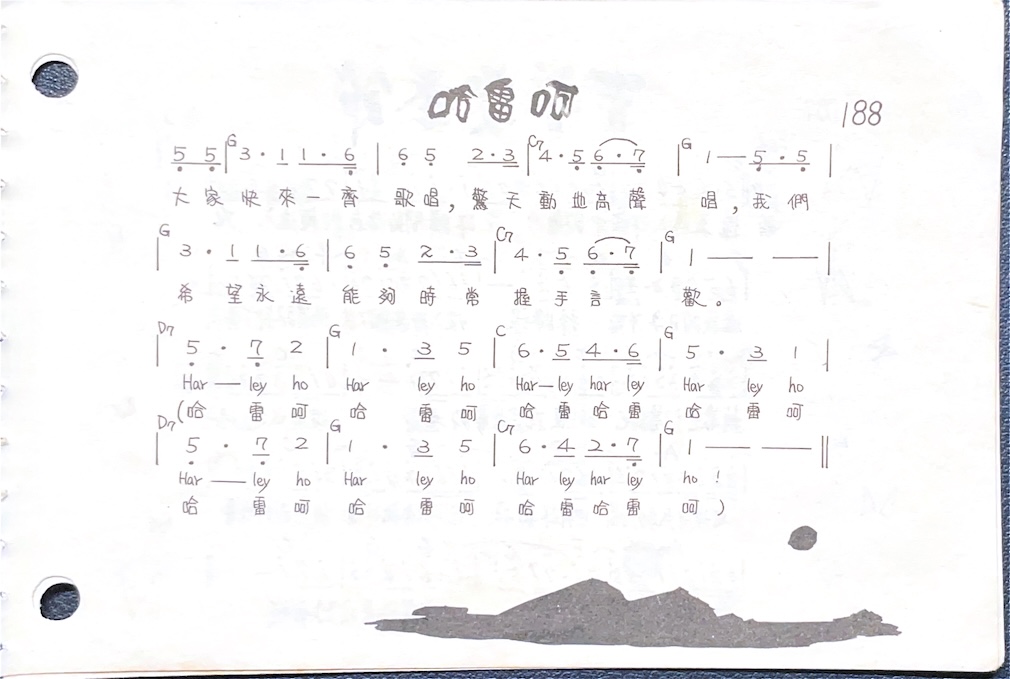 哈雷呵
188
G C7 G
5 5 | 3 · 1 1 · 6 | 6 5 2 · 3 | 4 · 5 6 · 7 | 1 — 5 · 5 |
大家快來一齊 歌唱,驚天動地高聲 唱,我們
G C7 G
| 3 · 1 1 · 6 | 6 5 2 · 3 | 4 · 5 6 · 7 | 1 — — |
希望永遠 能夠時常 握手言 歡。
D7 G C G
| 5 · 7 2 | 1 · 3 5 | 6 · 5 4 · 6 | 5 · 3 1 |
Har — ley ho Har ley ho Har — ley har ley Har ley ho
(哈 雷 呵 哈 雷 呵 哈雷哈雷 哈 雷 呵
D7 G C7 G
| 5 · 7 2 | 1 · 3 5 | 6 · 4 2 · 7 | 1 — — ||
Har — ley ho Har ley ho Har ley har ley ho !
哈 雷 呵 哈 雷 呵 哈雷哈雷 呵)